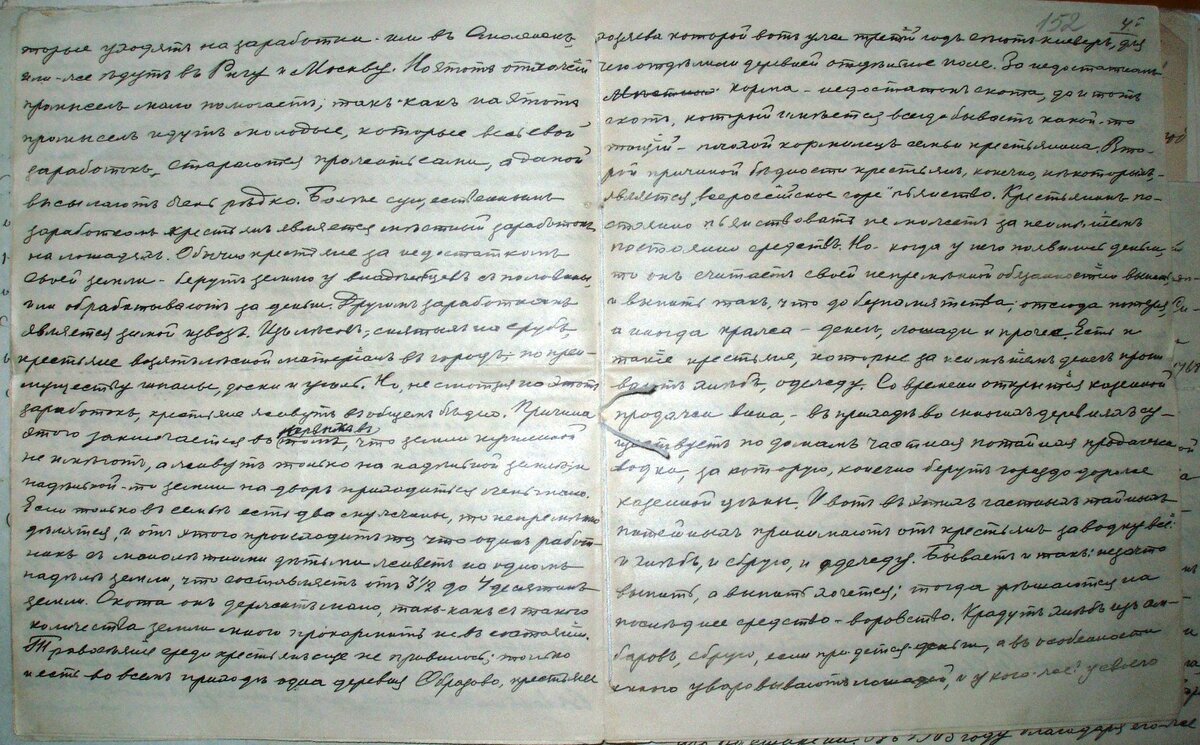 торые уходятъ на заработки или въ Смоленскъ
или-же ѣдутъ въ Ригу и Москву. Но этотъ отхожій
промыселъ мало помогаетъ; такъ-какъ на этотъ
промыселъ идутъ молодые, которые весь свой
заработокъ, стараются прожить сами, а домой
высылаютъ очень рѣдко. Болѣе существеннымъ
заработкомъ крестьянъ является мѣстный заработокъ
на лошадяхъ. Обычно крестьяне за недостаткомъ
своей земли - берутъ землю у владѣльцевъ съ половины,
или обрабатываютъ за деньги. Другимъ заработкомъ
является зимой извозъ. Изъ лѣсовъ, снятыхъ на срубъ,
крестьяне возятъ лѣсной матеріалъ въ городъ по преи-
муществу шпалы, доски и уголь. Но, не смотря на этотъ
заработокъ, крестьяне живутъ въ общемъ бѣдно. Причина
этого заключается въ томъ, что земли купленной
не имѣютъ, а живутъ только на надѣльной землѣ; а
надѣльной-то земли на дворъ приходится очень мало.
Если только въ семьѣ есть два мужчины, то непремѣнно
дѣлятся, и отъ этого происходитъ то, что одинъ работ-
никъ съ малолѣтними дѣтьми живетъ на одномъ
надѣлѣ земли, что составляетъ отъ 3½ до 4 десятинъ
земли. Скота онъ держитъ мало, такъ-какъ съ такого
количества земли много прокормить не въ состояніи.
Травосѣяніе среди крестьянъ еще не привилось; только
и есть во всемъ приходѣ одна деревня Образово, крестьяне
152
хозяева которой вотъ уже третій годъ сѣютъ клеверъ, для
чего отдѣлили деревней отдѣльное поле. За недостаткомъ
корма - недостатокъ скота, да и тотъ
скотъ, который имѣется всегда бываетъ какой-то
тощій - плохой кормилецъ семьи крестьянина. Вто-
рой причиной бѣдности крестьянъ, конечно, некоторыхъ,-
является всероссійское горе пьянство. Крестьянинъ по-
стоянно пьянствовать не можетъ за неимѣніемъ
постоянно средствъ. Но - когда у него появились деньги,
то онъ считаетъ своей непремѣнной обязанностію выпить
и выпить такъ, что до безпамятства; отсюда потеря
а иногда кража - денегъ, лошади и проч. Есть и
такіе крестьяне, которые за неимѣніемъ денегъ пропи-
ваютъ хлѣбъ, одежду. Со времени открытія казенной
продажи вина - въ приходѣ во многихъ деревняхъ су-
ществуетъ по домамъ частная потайная продажа
водки, за которую, конечно берутъ гораздо дороже
казенной цѣны. И вотъ въ этихъ частныхъ тайныхъ
питейныхъ принимаютъ отъ крестьянъ за водку всё:
и хлѣбъ, и сбрую, и одежду. Бываетъ и такъ: не за что
выпить, а выпить хочется; тогда рѣшаются на
послѣднее средство - воровство. Крадутъ хлѣбъ изъ ам-
баровъ, сбрую, если придется деньги, а въ особенности
много уваровываютъ лошадей, и у кого-же? у своего